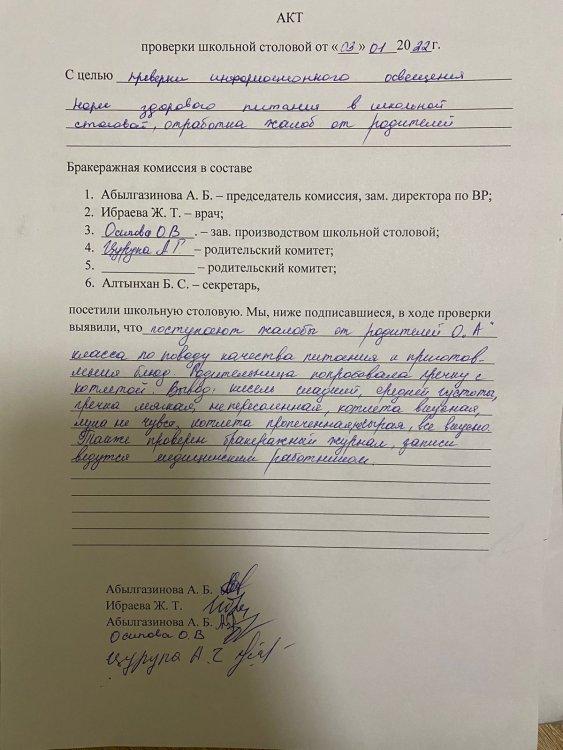 АКТ
проверки школьной столовой от «03» 01 2022 г.
С целью проверки информационного освещения
норм здорового питания в школьной
столовой, отработка жалоб от родителей
Бракеражная комиссия в составе
1. Абылгазинова А. Б. – председатель комиссия, зам. директора по ВР;
2. Ибраева Ж. Т. – врач;
3. Осипова О В . – зав. производством школьной столовой;
4. Цурупа А Г – родительский комитет;
5. – родительский комитет;
6. Алтынхан Б. С. – секретарь,
посетили школьную столовую. Мы, ниже подписавшиеся, в ходе проверки
выявили, что поступают жалобы от родителей 0 "А"
класса по поводу качества питания и приготов-
ления блюд. Родительница попробовала гречку с
котлетой. Вывод: кисель сладкий, средней густоты,
гречка мягкая, не пересоленная, котлета вкусная,
лука не котлета пропеченная, все вкусно.
Также проверен бракеражный журнал, записи
ведутся медицинским работником.
Абылгазинова А. Б.
Ибраева Ж. Т.
Абылгазинова А. Б.
Осипова О. В
Цурупа А. Г